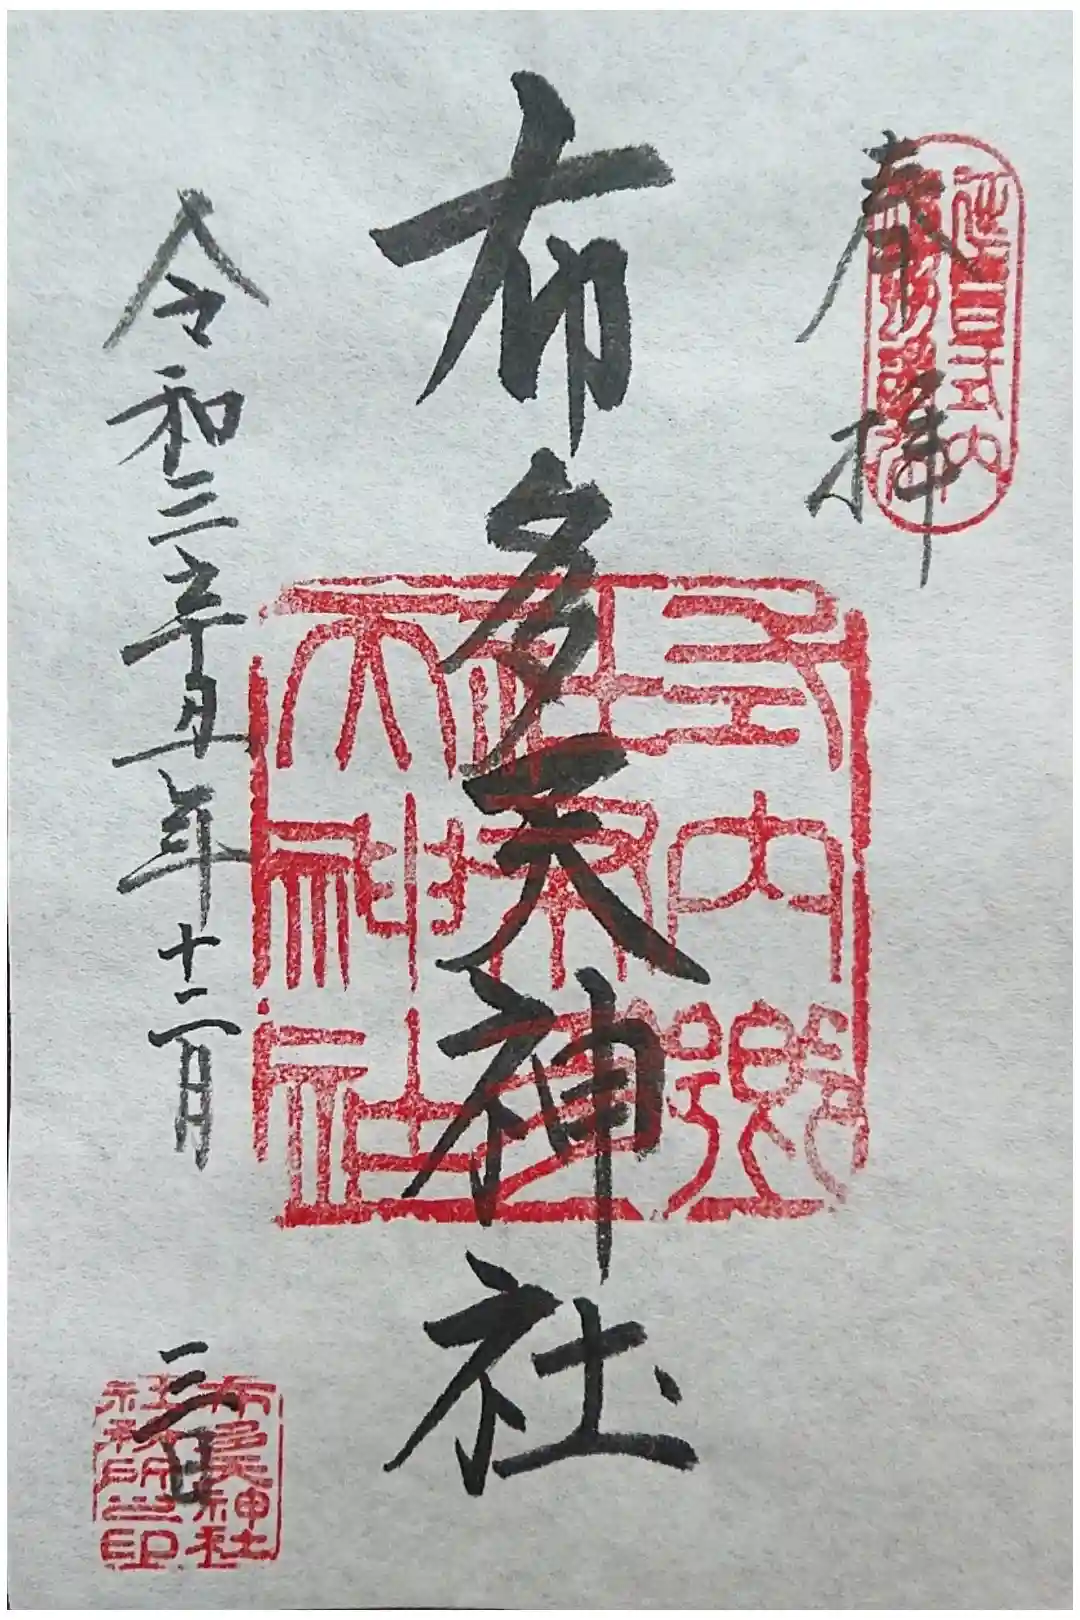 奉拝
延喜式内
布多天神社
式内郷
社布多
天神社
令和三辛丑年十二月三日
布多天神社
社務所之印